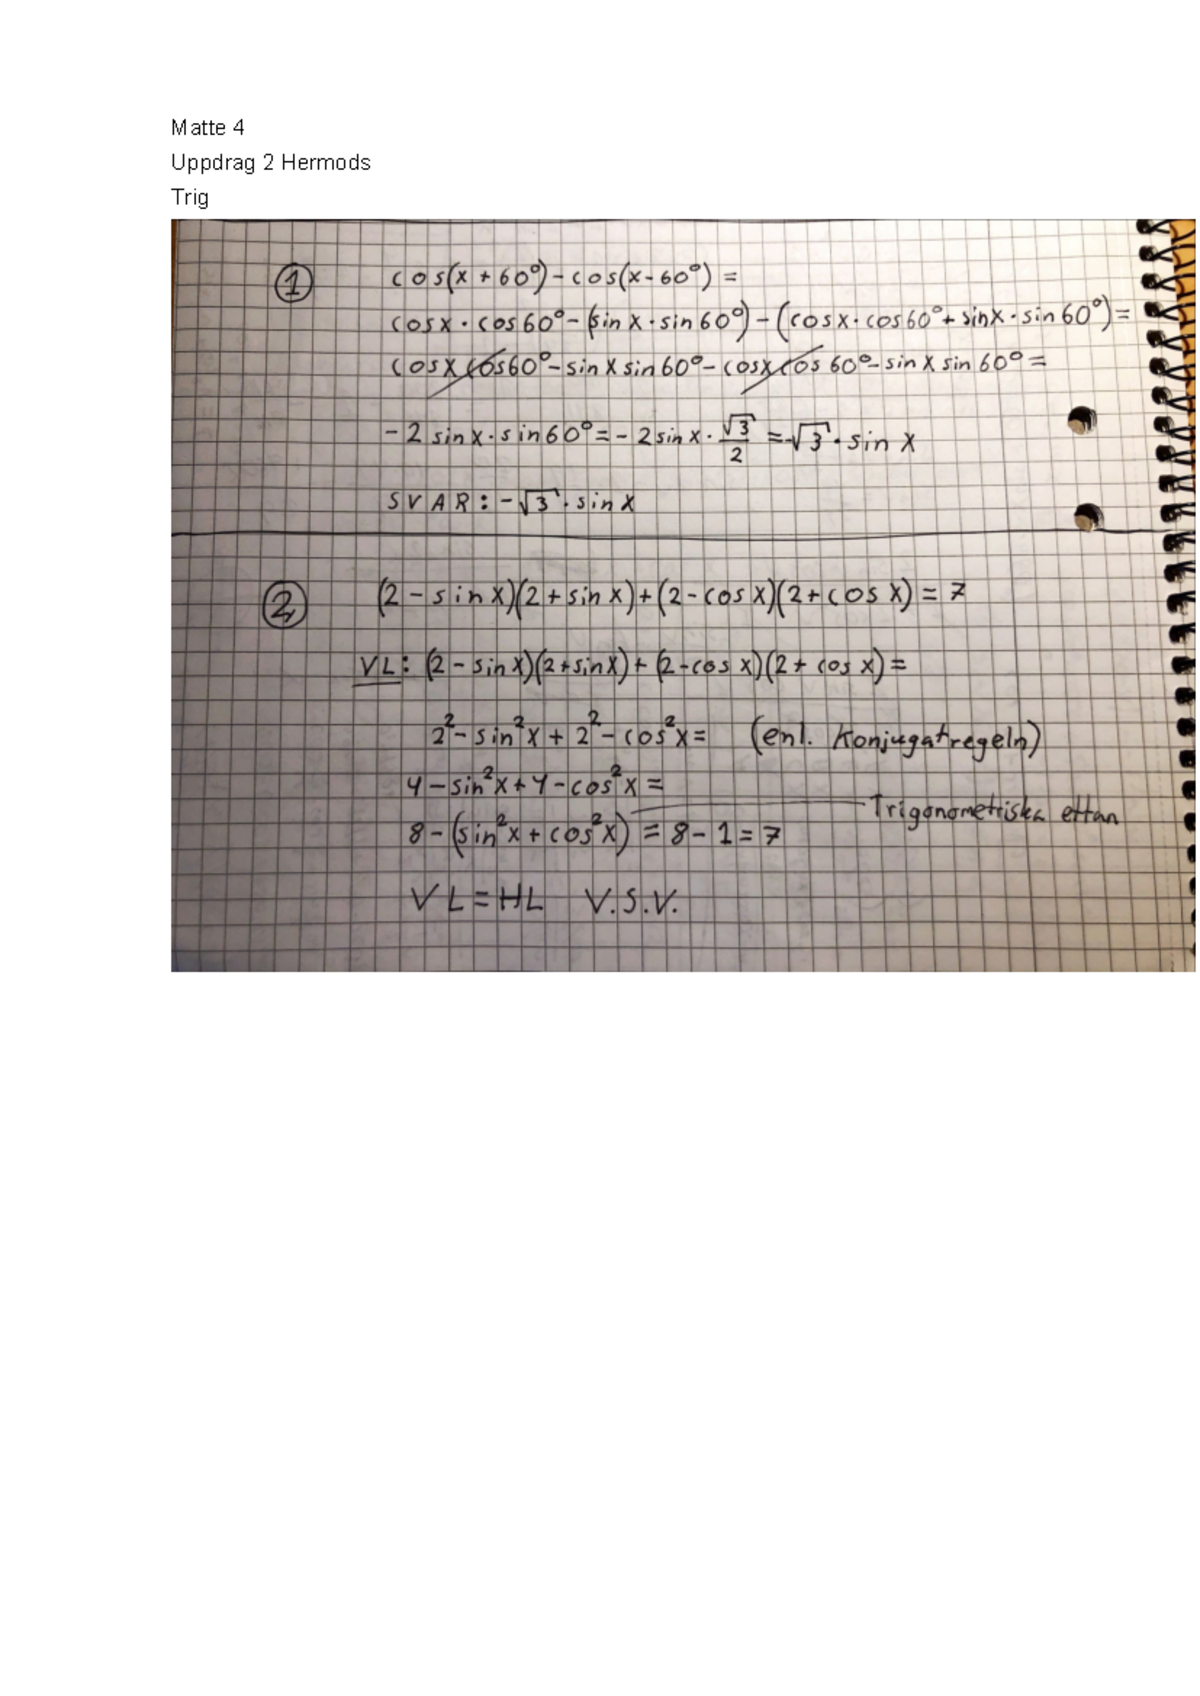 Matte 4
Uppdrag 2 Hermods
Trig
① cos(x + 60°) - cos(x - 60°) =
cosx · cos60° - (sinx · sin60°) - (cosx · cos60° + sinx · sin60°) =
cosx cos60° - sinx sin60° - cosx cos60° - sinx sin60° =
-2 sinx · sin60° = -2 sinx · √3/2 = -√3 · sin x
SVAR: -√3 · sin x
② (2 - sin x)(2 + sin x) + (2 - cos x)(2 + cos x) = 7
VL: (2 - sin x)(2 + sin x) + (2 - cos x)(2 + cos x) =
2² - sin²x + 2² - cos²x = (enl. konjugatregeln)
4 - sin²x + 4 - cos²x =
Trigonometriska ettan
8 - (sin²x + cos²x) = 8 - 1 = 7
VL = HL V.S.V.